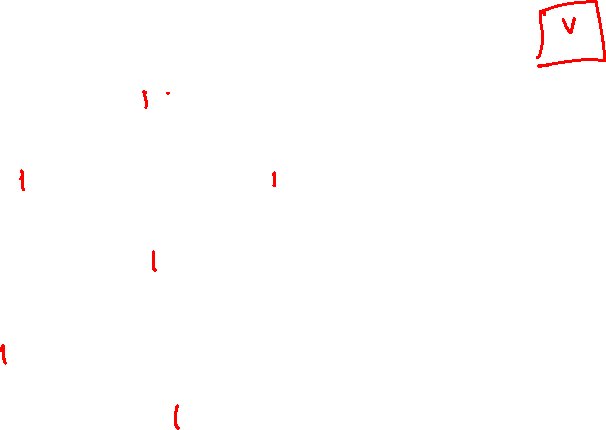 V
1
1
1
1
1
1